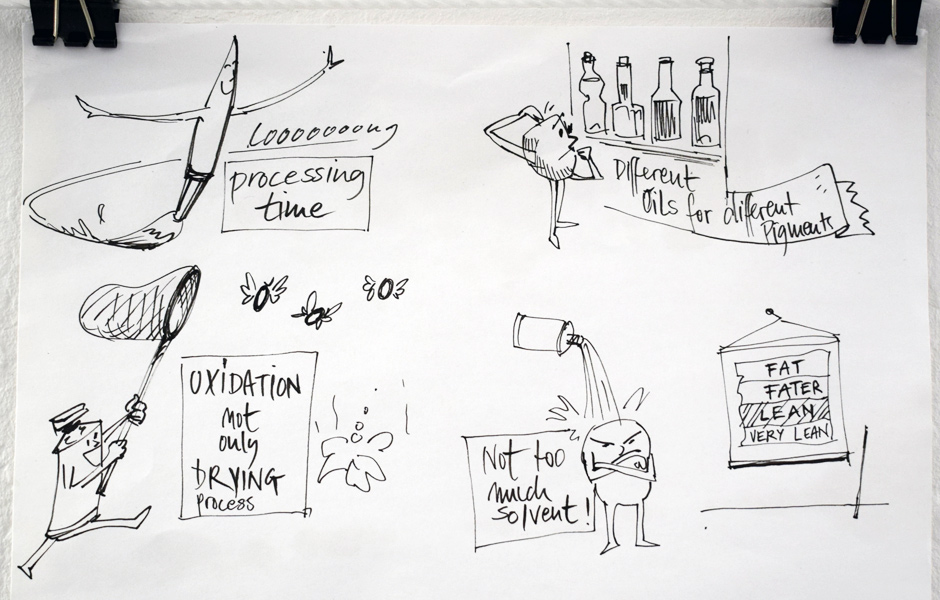 Looooooong
processing
time
Different
Oils for different
Pigments
OXIDATION
not
only
DRYING
PROCESS
Not too
much
solvent!
FAT
FATER
LEAN
VERY LEAN